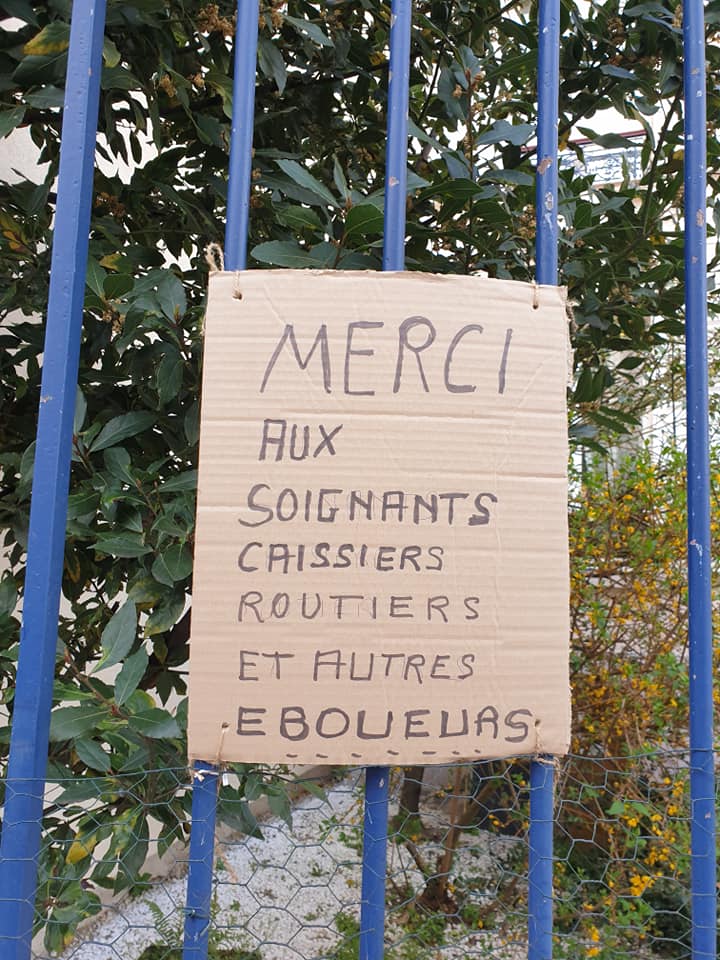 MERCI
AUX
SOIGNANTS
CAISSIERS
ROUTIERS
ET AUTRES
EBOUEURS